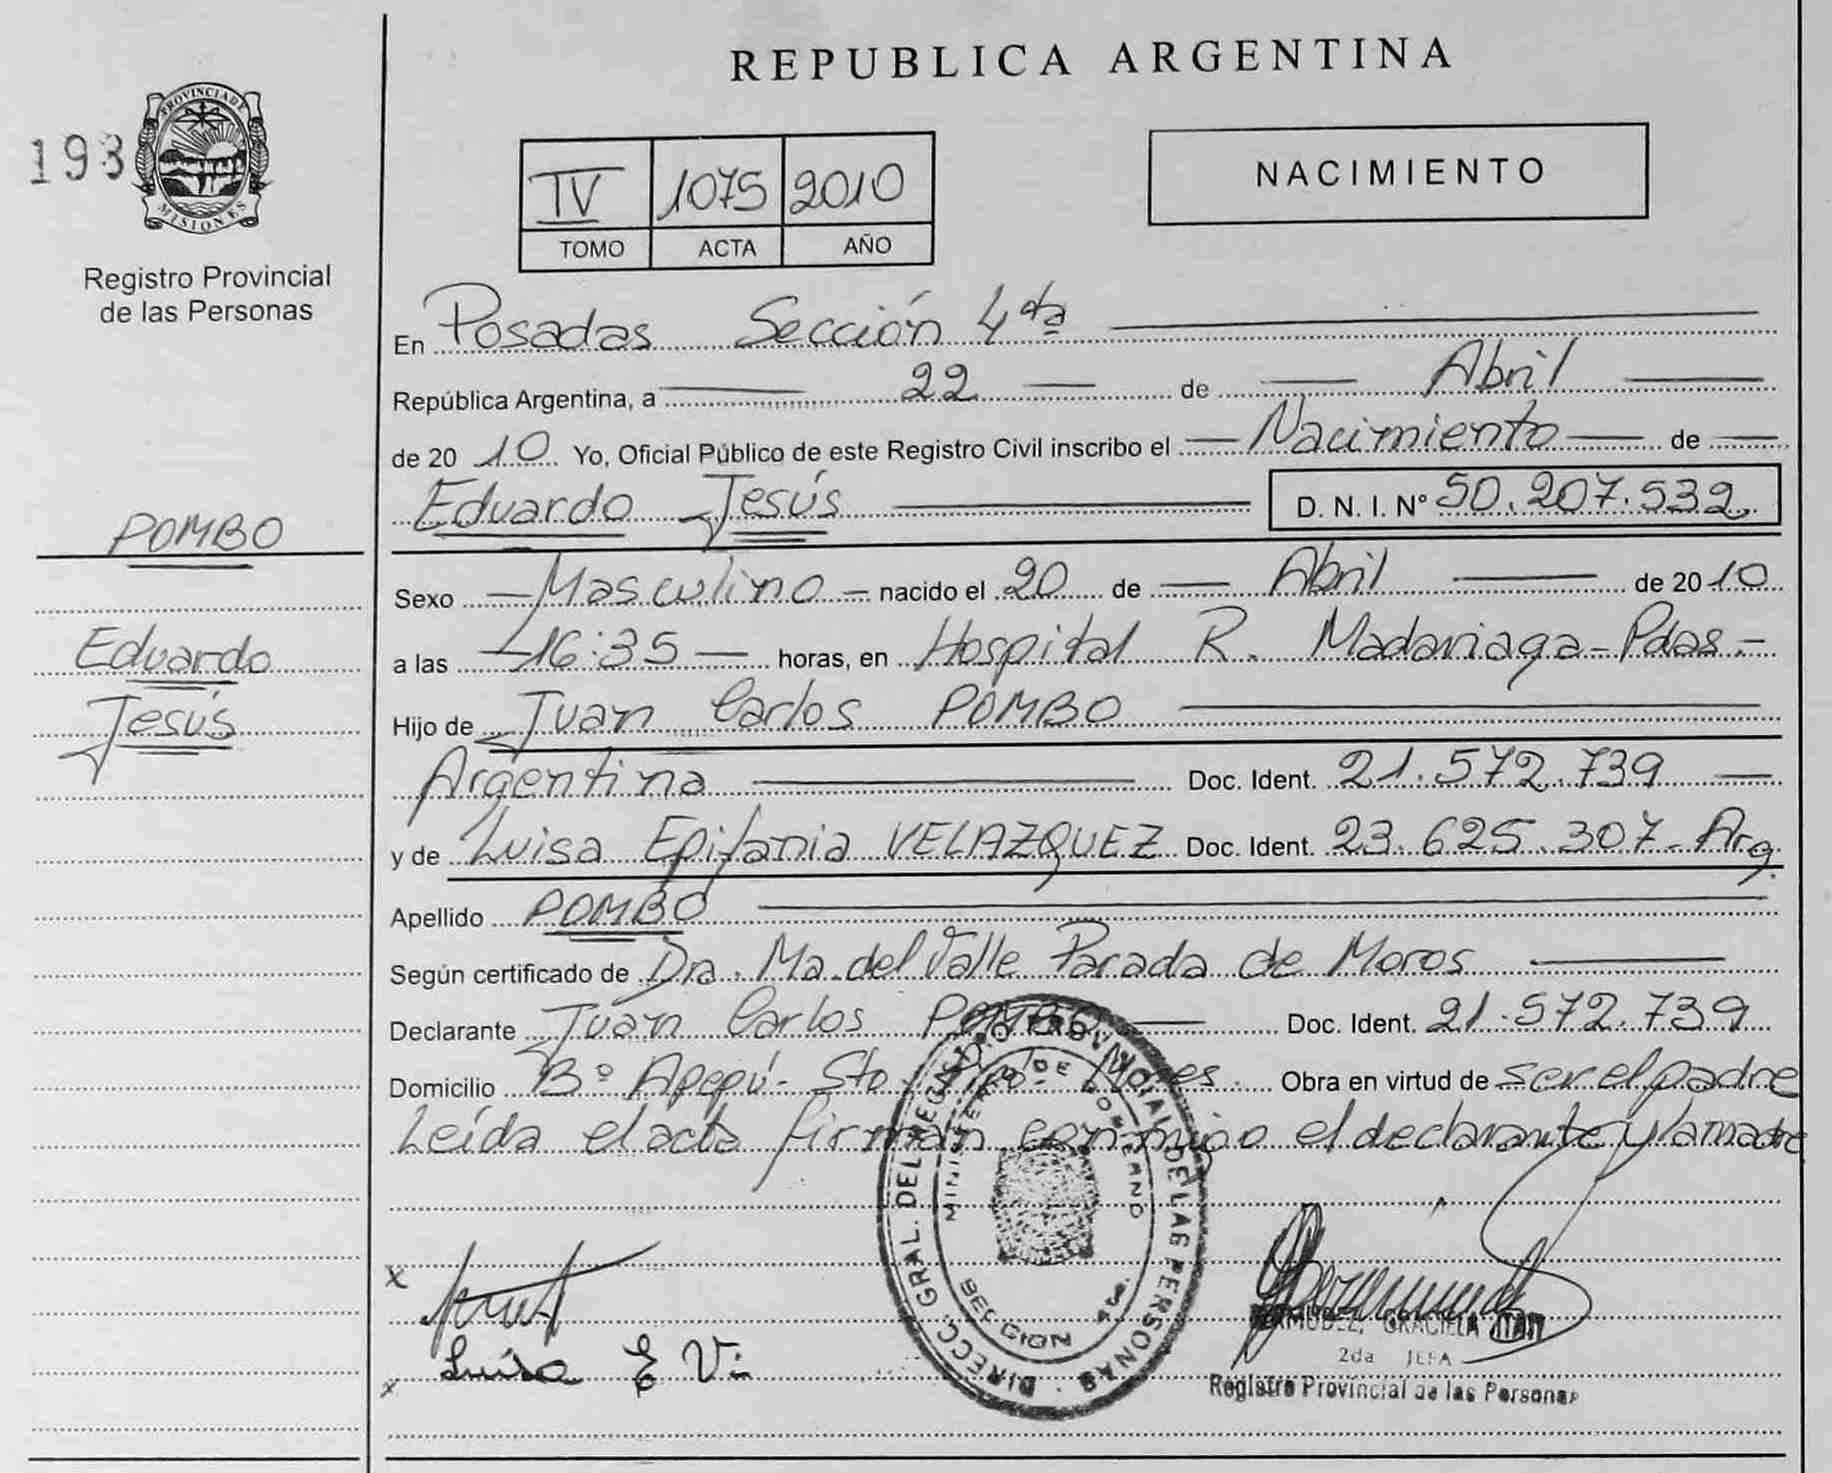 REPUBLICA ARGENTINA
193
PROVINCIA DE MISIONES
Registro Provincial
de las Personas
IV 1075 2010
TOMO ACTA AÑO
NACIMIENTO
En Posadas Sección 4ta
República Argentina, a 22 de Abril
de 2010 Yo, Oficial Público de este Registro Civil inscribo el Nacimiento de
Eduardo Jesús D. N. I. Nº 50.207.532
POMBO
Eduardo
Jesús
Sexo Masculino nacido el 20 de Abril de 2010
a las 16:35 horas, en Hospital R. Madariaga-Pdas.-
Hijo de Juan Carlos POMBO
Argentina Doc. Ident. 21.572.739
y de Luisa Epifania VELAZQUEZ Doc. Ident. 23.625.307-Arg.
Apellido POMBO
Según certificado de Dra. Ma. del Valle Parada de Moros
Declarante Juan Carlos POMBO Doc. Ident. 21.572.739
Domicilio Bº Apepú- Sto. Mnes. Obra en virtud de ser el padre
Leída el acta firman conmigo el declarante y la madre
x
x Luisa E V
DIRECC. GRAL. DEL REGISTRO PROVINCIAL DE LAS PERSONAS
MINISTERIO DE GOBIERNO
SECCION 4ta.
BERMUDEZ, GRACIELA
2da JEFA
Registro Provincial de las Personas